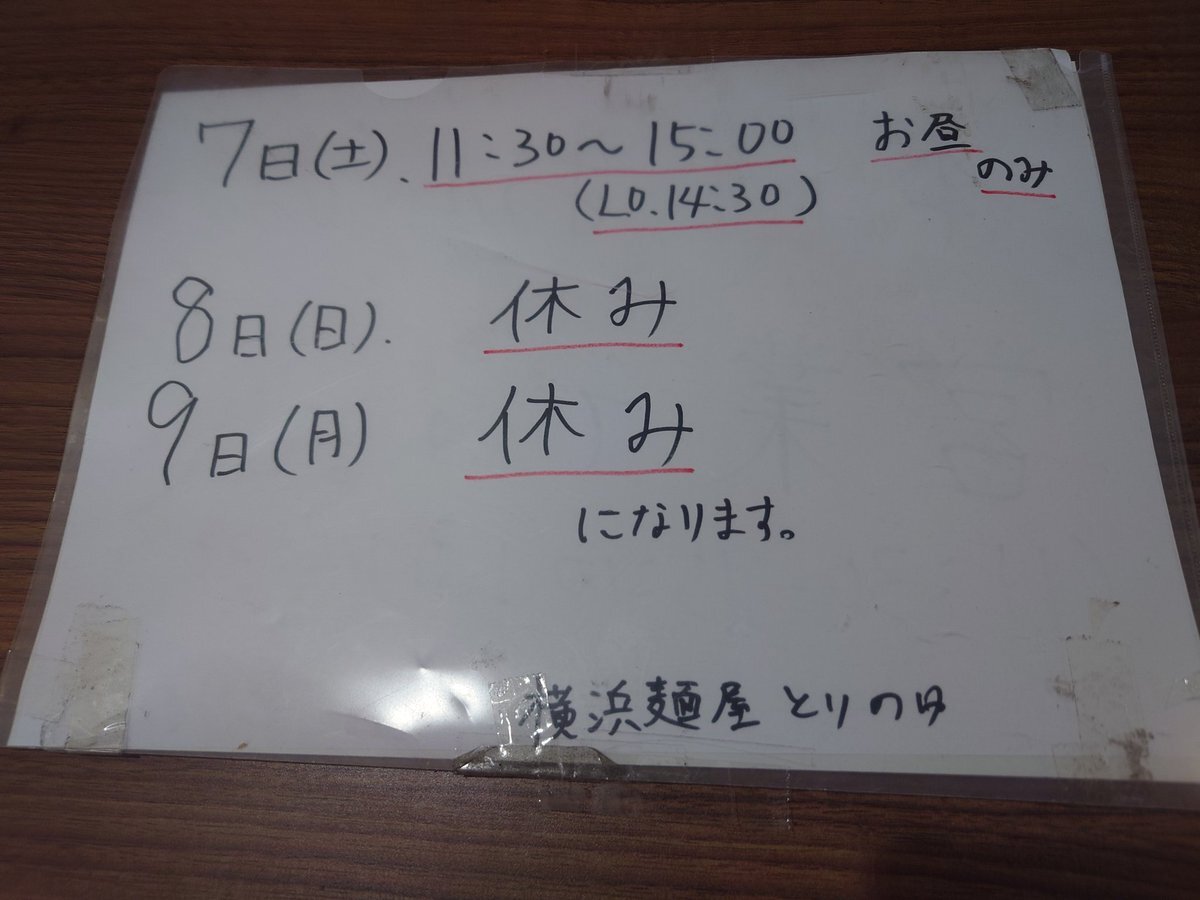 7日(土). 11:30～15:00 お昼のみ
(LO.14:30)
8日(日). 休み
9日(月) 休み
になります。
横浜麺屋 とりのゆ